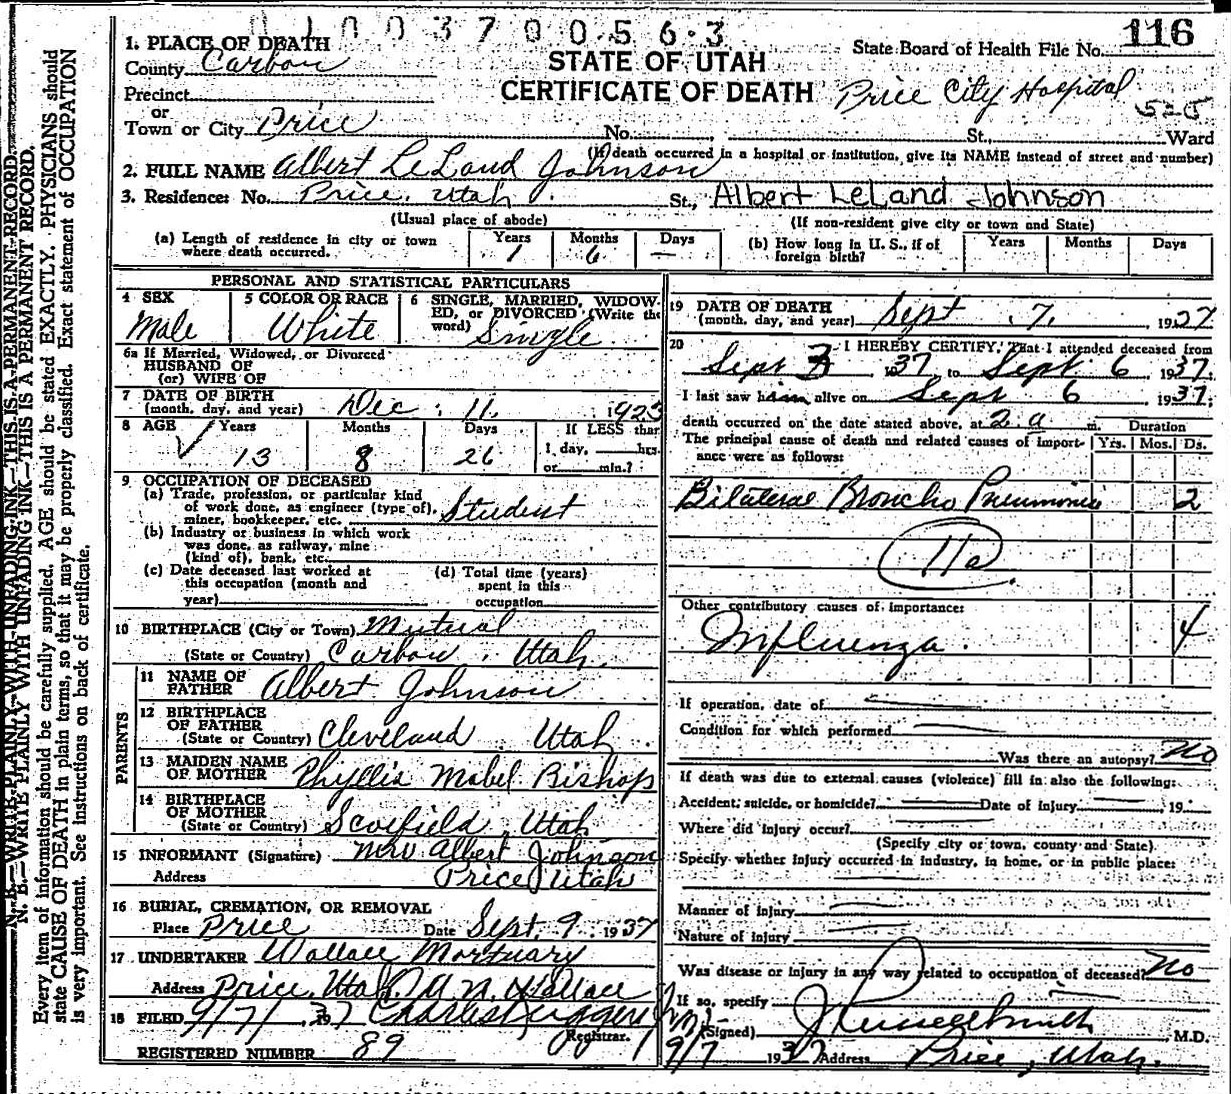 0 1 0 0 3 7 0 0 5 6 3
116
1. PLACE OF DEATH
STATE OF UTAH
State Board of Health File No.
County Carbon
CERTIFICATE OF DEATH
Price City Hospital
Precinct
or
Town or City Price No. St., Ward
(If death occurred in a hospital or institution, give its NAME instead of street and number)
2. FULL NAME Albert LeLand Johnson
3. Residence: No. Price, Utah St., Albert LeLand Johnson
(Usual place of abode) (If non-resident give city or town and State)
(a) Length of residence in city or town where death occurred. Years 1 Months 6 Days —
(b) How long in U. S., if of foreign birth? Years Months Days
PERSONAL AND STATISTICAL PARTICULARS
4 SEX Male
5 COLOR OR RACE White
6 SINGLE, MARRIED, WIDOWED, or DIVORCED (Write the word) Single
6a If Married, Widowed, or Divorced
HUSBAND OF
(or) WIFE OF
7 DATE OF BIRTH
(month, day, and year) Dec. 11, 1923
8 AGE Years 13 Months 8 Days 26
If LESS than
1 day, hrs.
or min.?
9 OCCUPATION OF DECEASED
(a) Trade, profession, or particular kind
of work done, as engineer (type of),
miner, bookkeeper, etc. Student
(b) Industry or business in which work
was done, as railway, mine
(kind of), bank, etc.
(c) Date deceased last worked at
this occupation (month and
year)
(d) Total time (years)
spent in this
occupation
10 BIRTHPLACE (City or Town) Mutual
(State or Country) Carbon, Utah
PARENTS
11 NAME OF
FATHER Albert Johnson
12 BIRTHPLACE
OF FATHER
(State or Country) Cleveland Utah
13 MAIDEN NAME
OF MOTHER Phyllis Mabel Bishop
14 BIRTHPLACE
OF MOTHER
(State or Country) Scofield, Utah
15 INFORMANT (Signature) Mrs Albert Johnson
Address Price, Utah
16 BURIAL, CREMATION, OR REMOVAL
Place Price Date Sept. 9, 1937
17 UNDERTAKER Wallace Mortuary
Address Price, Utah Wallace
18 FILED 9/7/, 37 Charles
Registrar.
REGISTERED NUMBER 89
19 DATE OF DEATH
(month, day, and year) Sept. 7, 1937
20 I HEREBY CERTIFY, That I attended deceased from
Sept 3, 1937, to Sept 6 1937;
I last saw him alive on Sept 6 1937;
death occurred on the date stated above, at 2 a m. Duration
The principal cause of death and related causes of importance were as follows: Yrs. Mos. Ds.
Bilateral Broncho Pneumonia 2
11a
Other contributory causes of importance:
Influenza 4
If operation, date of
Condition for which performed
Was there an autopsy? No
If death was due to external causes (violence) fill in also the following:
Accident, suicide, or homicide? Date of injury 19
Where did injury occur?
(Specify city or town, county and State)
Specify whether injury occurred in industry, in home, or in public place:
Manner of injury
Nature of injury
Was disease or injury in any way related to occupation of deceased? No
If so, specify
(Signed) J Russell Smith, M.D.
9/7 1937 Address Price, Utah.
N. B.—WRITE PLAINLY WITH UNFADING INK—THIS IS A PERMANENT RECORD.
N. B.—WRITE PLAINLY WITH UNFADING INK—THIS IS A PERMANENT RECORD.
Every item of information should be carefully supplied. AGE should be stated EXACTLY. PHYSICIANS should
state CAUSE OF DEATH in plain terms, so that it may be properly classified. Exact statement of OCCUPATION
is very important. See instructions on back of certificate.